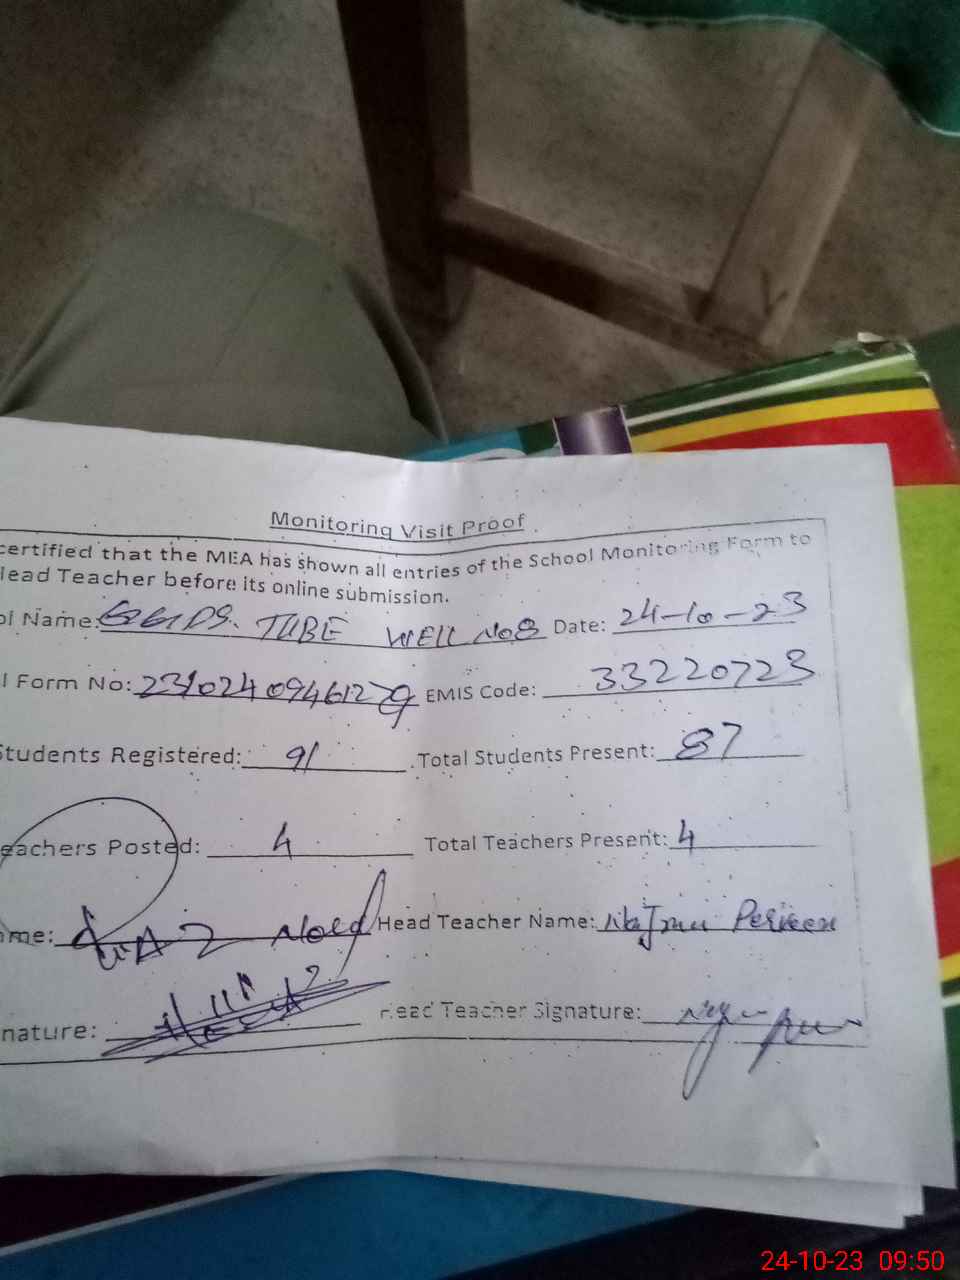 Monitoring Visit Proof
certified that the MEA has shown all entries of the School Monitoring Form to
Head Teacher before its online submission.
ol Name: GGPS. TUBE WELL No8 Date: 24-10-23
l Form No: 23102409461279 EMIS Code: 33220723
Students Registered: 91 Total Students Present: 87
eachers Posted: 4 Total Teachers Present: 4
me: Head Teacher Name: Najma Perveen
nature: Head Teacher Signature:
24-10-23 09:50